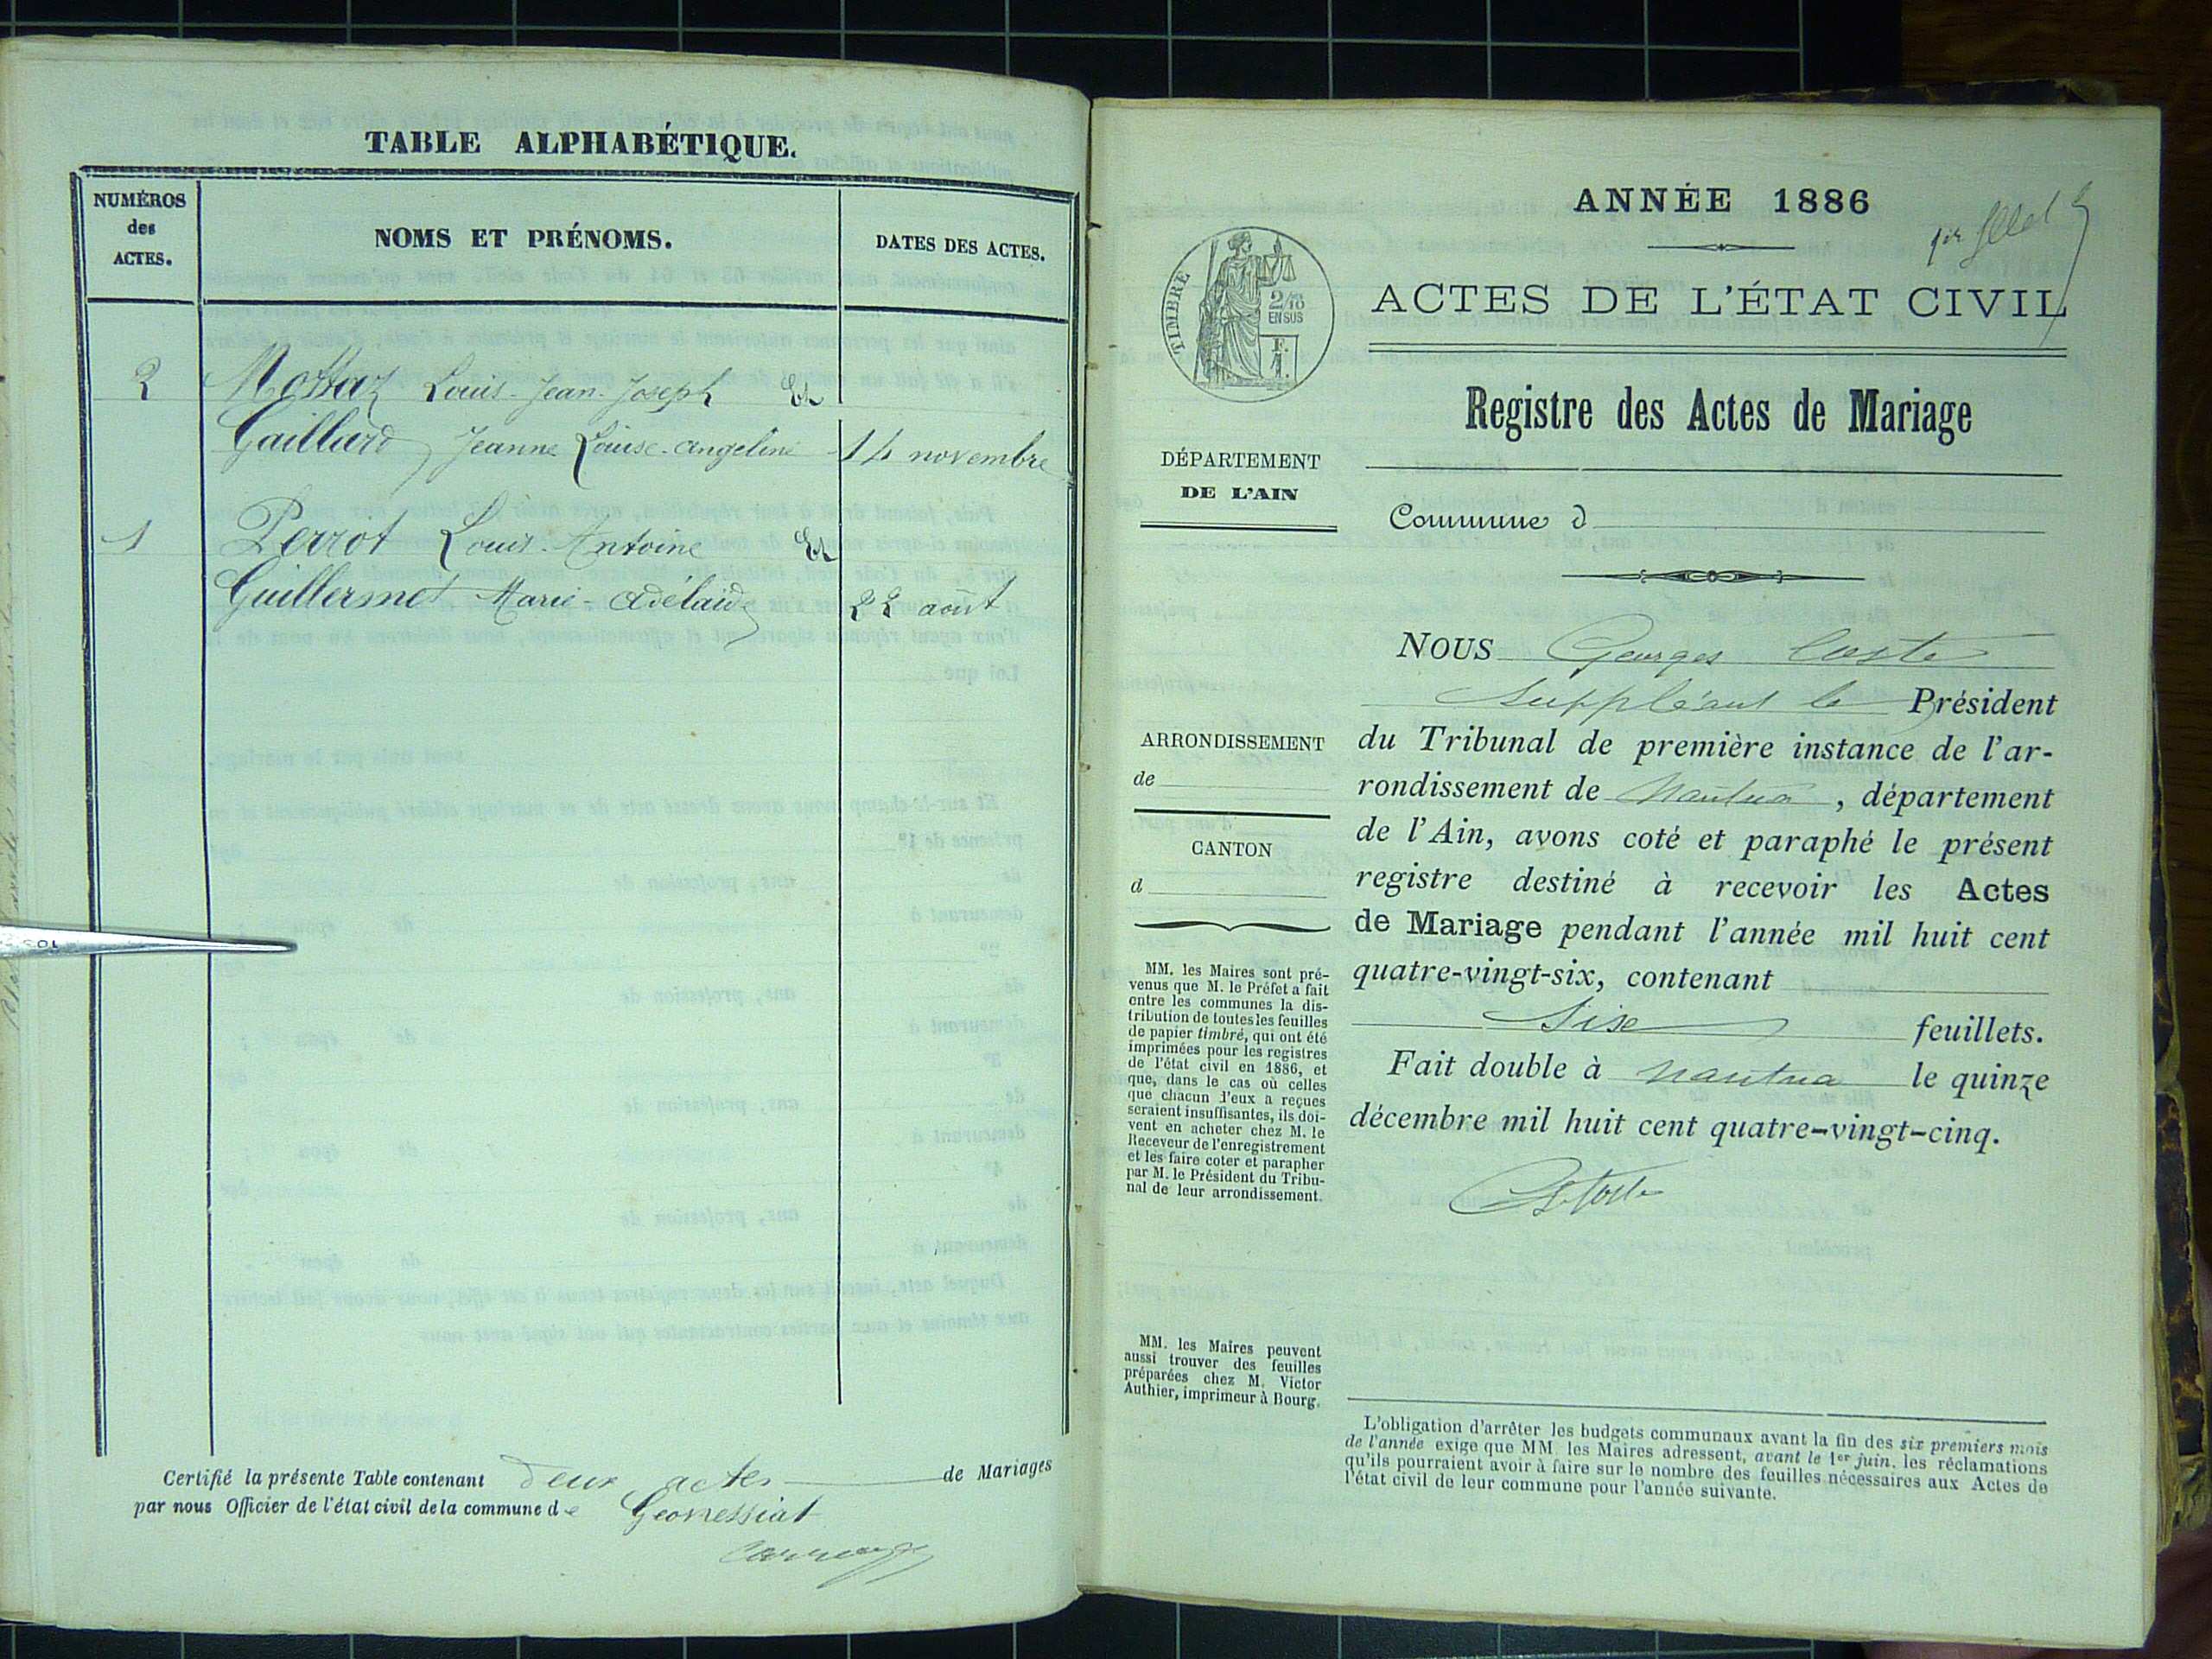 TABLE ALPHABÉTIQUE.
NUMÉROS
des
ACTES.
NOMS ET PRÉNOMS.
DATES DES ACTES.
2 Mottaz Louis-Jean-Joseph Et
Gaillard Jeanne Louise-Angeline 14 novembre
1 Perrot Louis-Antoine Et
Guillermet Marie-Adélaïde 22 août
Certifié la présente Table contenant deux actes de Mariages
par nous Officier de l'état civil de la commune de Geovressiat
ANNÉE 1886
TIMBRE
2/10
EN SUS
ACTES DE L'ÉTAT CIVIL
Registre des Actes de Mariage
DÉPARTEMENT
DE L'AIN
Commune d
NOUS Georges Coste
suppléant le Président
du Tribunal de première instance de l'ar-
rondissement de Nantua, département
de l'Ain, avons coté et paraphé le présent
registre destiné à recevoir les Actes
de Mariage pendant l'année mil huit cent
quatre-vingt-six, contenant
Six feuillets.
Fait double à Nantua le quinze
décembre mil huit cent quatre-vingt-cinq.
ARRONDISSEMENT
de
CANTON
d
MM. les Maires sont pré-
venus que M. le Préfet a fait
entre les communes la dis-
tribution de toutes les feuilles
de papier timbré, qui ont été
imprimées pour les registres
de l'état civil en 1886, et
que, dans le cas où celles
que chacun d'eux a reçues
seraient insuffisantes, ils doi-
vent en acheter chez M. le
Receveur de l'enregistrement
et les faire coter et parapher
par M. le Président du Tribu-
nal de leur arrondissement.
MM. les Maires peuvent
aussi trouver des feuilles
préparées chez M. Victor
Authier, imprimeur à Bourg.
L'obligation d'arrêter les budgets communaux avant la fin des six premiers mois
de l'année exige que MM. les Maires adressent, avant le 1er juin, les réclamations
qu'ils pourraient avoir à faire sur le nombre des feuilles nécessaires aux Actes de
l'état civil de leur commune pour l'année suivante.